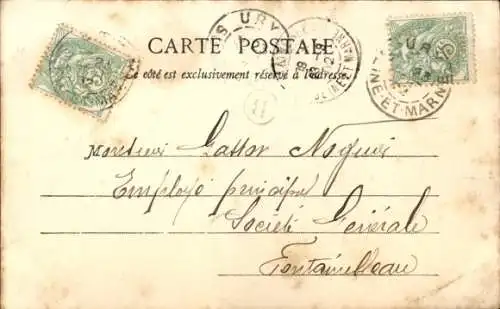 URY
CARTE POSTALE
Ce côté est exclusivement réservé à l'adresse.
URY
SEINE-ET-MARNE
Monsieur Gaston Noguès
Employé principal
Société Générale
Fontainebleau